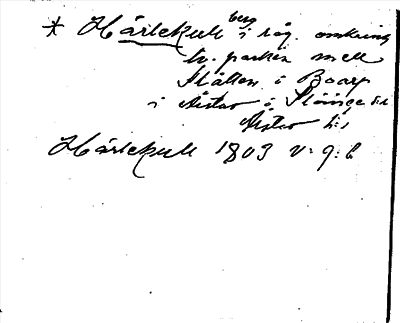 * Hårlekull berg i råg. omkring
tv. parken mell
Slätten i Boarp
i Årstad o. Slöinge sn
Årstad hd
Hårlekull 1803 v: g: b